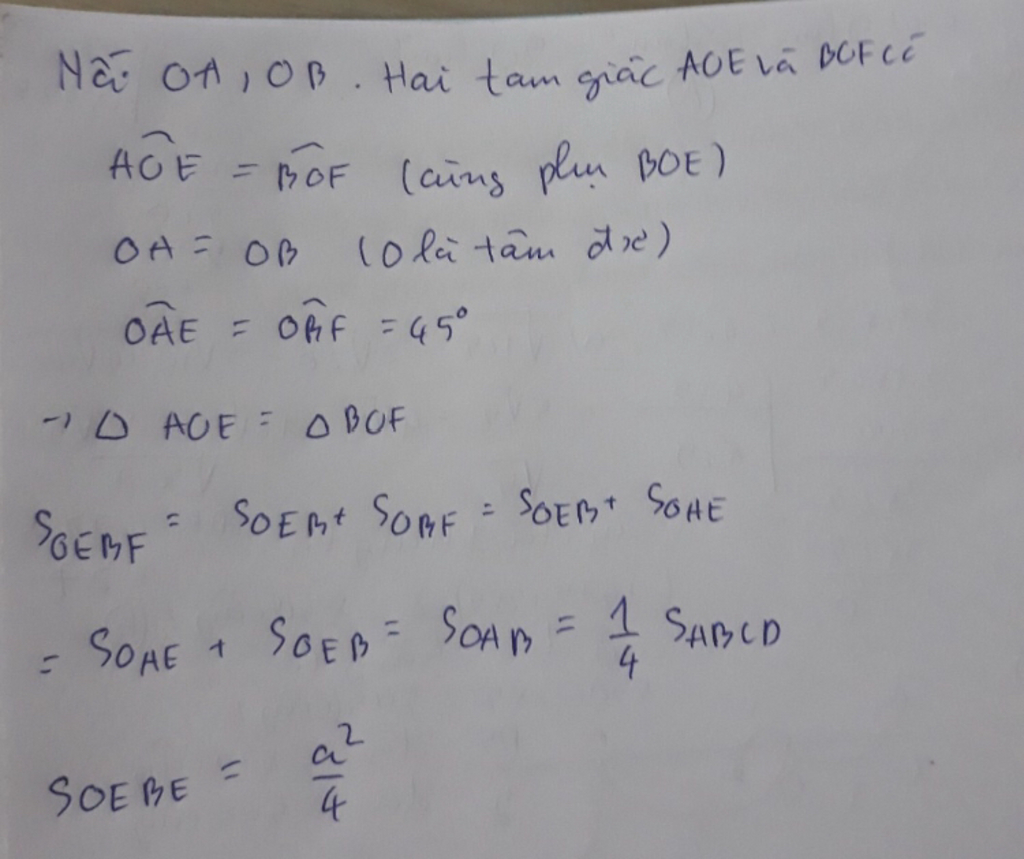 Nối OA, OB. Hai tam giác AOE và BOF có
AOE = BOF (cùng phụ BOE)
OA = OB (O là tâm đx)
OAE = OBF = 45°
→ Δ AOE = Δ BOF
SOEBF = SOEB + SOBF = SOEB + SOAE
= SOAE + SOEB = SOAB = 1/4 SABCD
SOEBE = a²/4